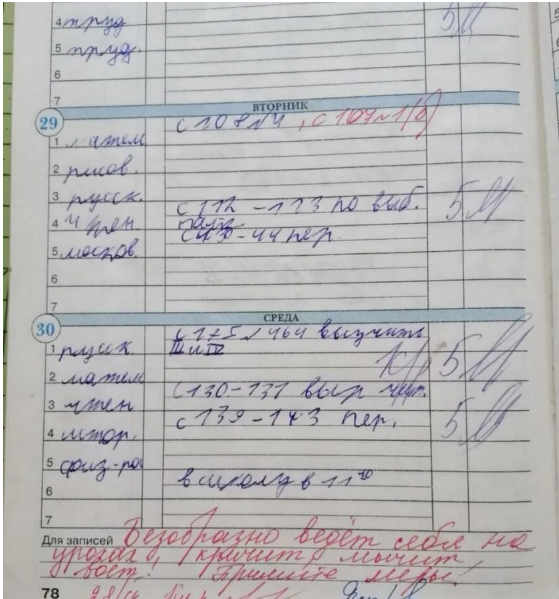 4 труд 5
5 труд.
6
7
ВТОРНИК
29
с 107 № 1(б)
1 матем
2 рисов.
3 русск.
с 112 - 113 по выб. 5
4 чтен.
пер.
5 москов.
6
7
СРЕДА
30
с 175 № 464 выучить
1 русск. III и IV
5
2 матем
с 130-131 выр
3 чтен
с 139-143 пер. 5
4 истор.
5 физ-ра
в школу в 11
6
7
Для записей Безобразно ведёт себя на
уроках, кричит, мычит
воет! Примите меры!
78